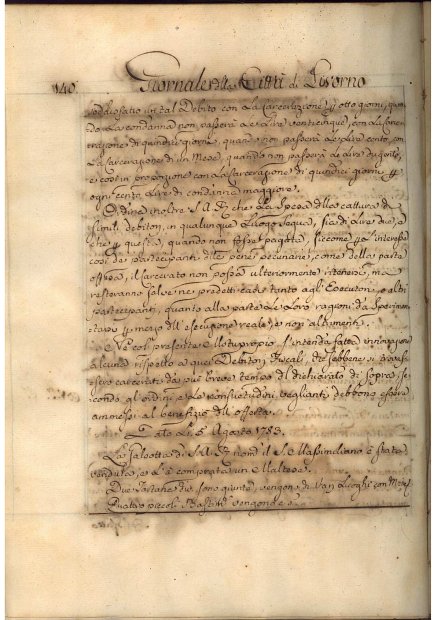 140 Giornale della Città di Livorno
soddisfatto un tal Debito con la Carcerazione p otto giorni, quan
do la condanna non passerà le Lire venticinque, con la Carce
razione di quindici giorni, quando non passerà le Lire cento, con
la Carcerazione di un Mese, quando non passerà le Lire dugento,
e così in proporzione con la Carcerazione di quindici giorni p
ogni cento Lire di condanna maggiore.
Ordina inoltre S.A.R. che la Spesa della cattura di
simili debitori, in qualunque Luogo segua, sia di Lire due, e
che p questa, quando non fosse pagata, siccome p l'interesse
così dei partecipanti delle pene pecuniarie, come della parte
offesa, il carcerato non possa ulteriormente ritenersi, ma
resteranno salve nei predetti casi tanto agl'Esecutori, o altri
partecipanti, quanto alla parte le loro ragioni da sperimen
tarsi p mezzo dell'esecuzione reale, e non altrimenti.
Nè col presente Motuproprio s'intenda fatta innovazione
alcuna rispetto a quei Debitori Fiscali, che sebbene si trovassero
essere carcerati da più breve tempo del dichiarato di sopra se
condo gl'ordini, e le consuetudini veglianti debbono essere
ammessi al benefizio dell'offerta.
Data Li 5 Agosto 1783.
La falsotta di S.A.R. nom.ª il S. Massimiliano è stata
venduta, e l'à comprata un Maltese.
Due Tartane due sono giunte, vengono di Varj Luoghi con Merci
Quattro piccoli Bastim.ti vengono e